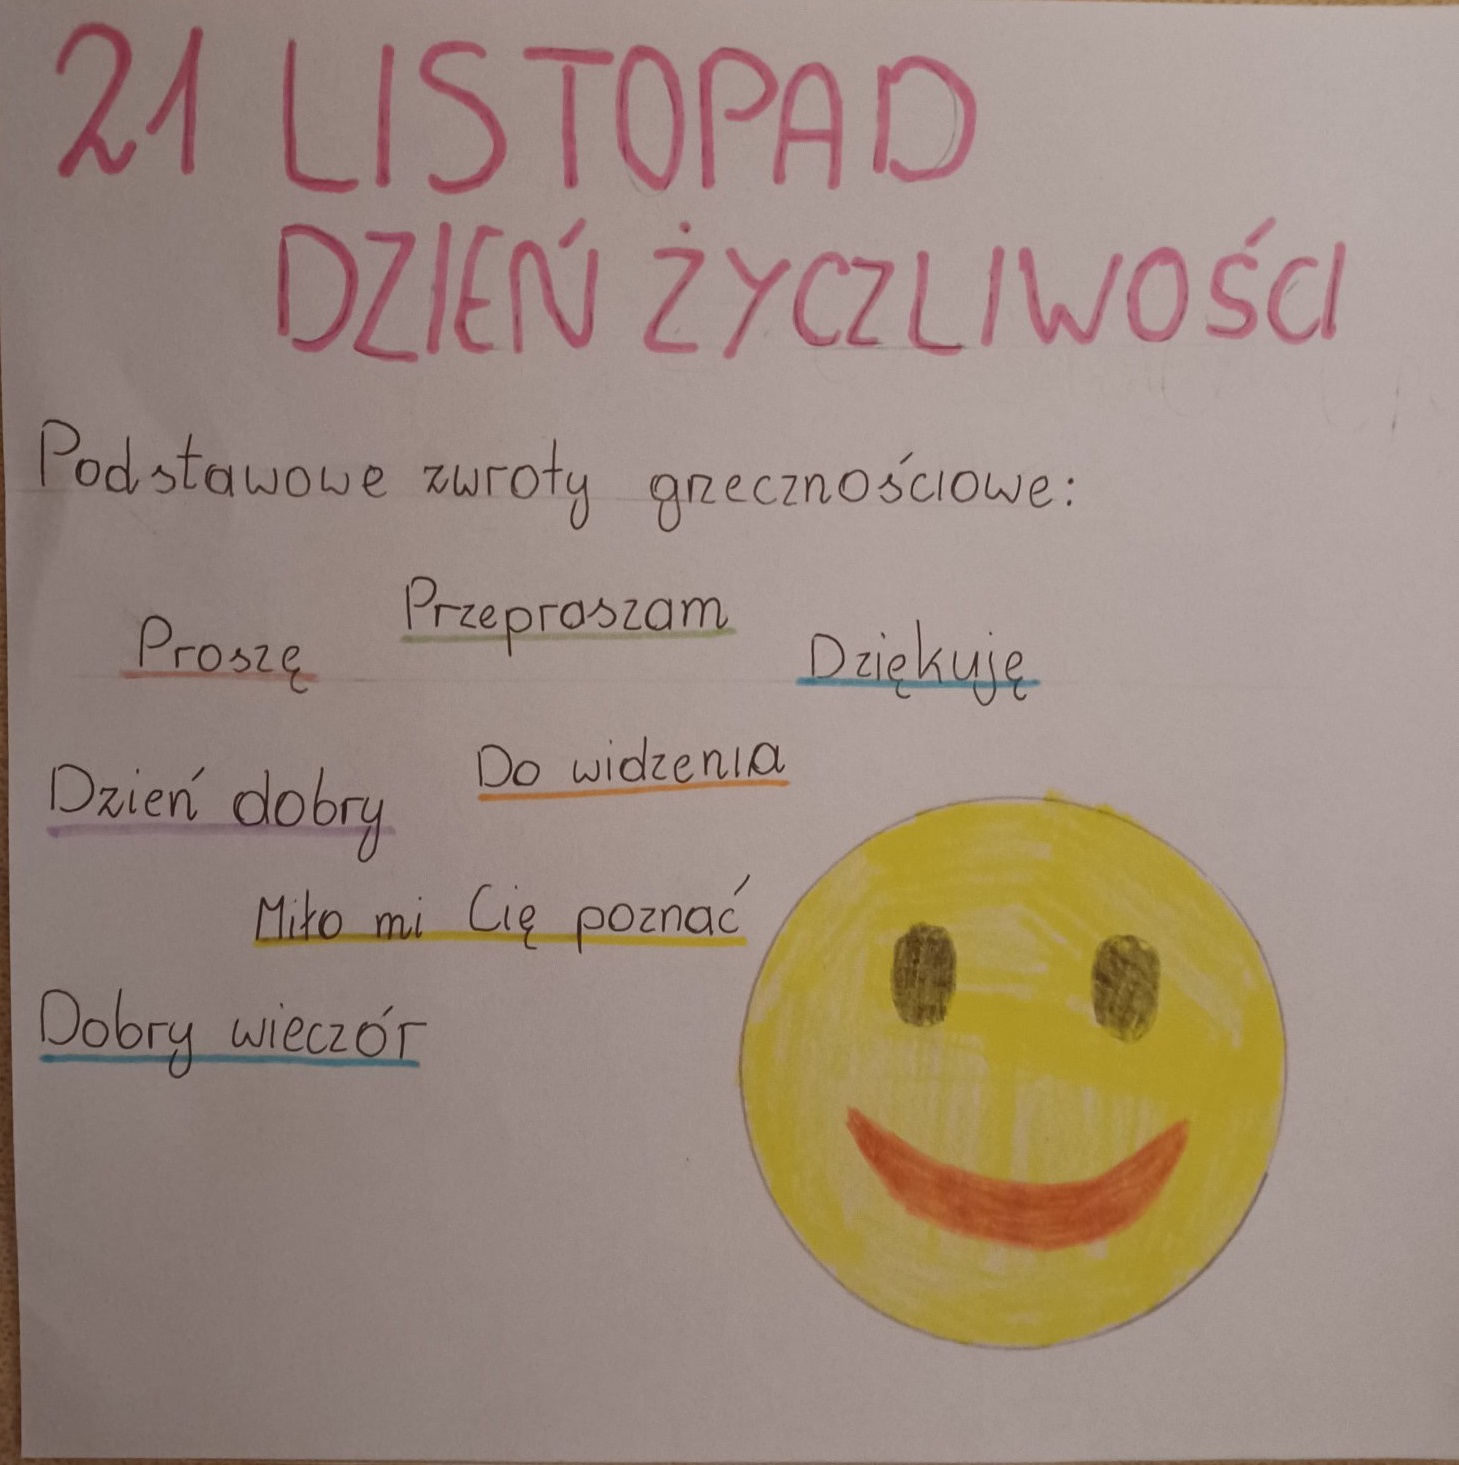 21 LISTOPAD
DZIEŃ ŻYCZLIWOŚCI
Podstawowe zwroty grzecznościowe:
Proszę
Przepraszam
Dziękuję
Dzień dobry
Do widzenia
Miło mi Cię poznać
Dobry wieczór